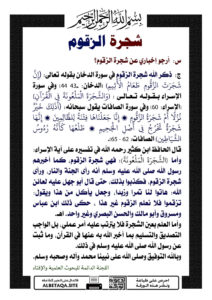 بسم الله الرحمن الرحيم
شجرة الزقوم
س: أرجو إخباري عن شجرة الزقوم؟
ج: ذكر الله شجرة الزقوم في سورة الدخان بقوله تعالى: ﴿إِنَّ
شَجَرَتَ الزَّقُّومِ طَعَامُ الْأَثِيمِ﴾ (الدخان: 43، 44) وفي سورة
الإسراء بقوله تعالى: ﴿وَالشَّجَرَةَ الْمَلْعُونَةَ فِي الْقُرْآنِ﴾
(الإسراء: 60) وفي سورة الصافات يقول سبحانه: ﴿أَذَلِكَ خَيْرٌ
نُزُلًا أَمْ شَجَرَةُ الزَّقُّومِ * إِنَّا جَعَلْنَاهَا فِتْنَةً لِلظَّالِمِينَ * إِنَّهَا
شَجَرَةٌ تَخْرُجُ فِي أَصْلِ الْجَحِيمِ * طَلْعُهَا كَأَنَّهُ رُءُوسُ
الشَّيَاطِينِ﴾ (الصافات: 62 - 65).
قال الحافظ ابن كثير رحمه الله في تفسيره على آية الإسراء:
وأما (الشجرة الملعونة) فهي شجرة الزقوم، كما أخبرهم
رسول الله صلى الله عليه وسلم أنه رأى الجنة والنار، ورأى
شجرة الزقوم، فكذبوا بذلك، حتى قال أبو جهل عليه لعائن
الله: هاتوا لنا تمرا وزبدا، وجعل يأكل من هذا بهذا ويقول:
تزقموا فلا نعلم الزقوم غير هذا، حكى ذلك ابن عباس
ومسروق وأبو مالك والحسن البصري وغير واحد. اهـ.
وأما العلم بعين الشجرة فلا يترتب عليه أمر عملي، بل الواجب
التصديق والتسليم بما أخبر الله به عنها في القرآن، وما ثبت
عن رسول الله صلى الله عليه وسلم في ذلك.
وبالله التوفيق وصلى الله على نبينا محمد وآله وصحبه وسلم.
اللجنة الدائمة للبحوث العلمية والإفتاء
ALBETAQA.SITE